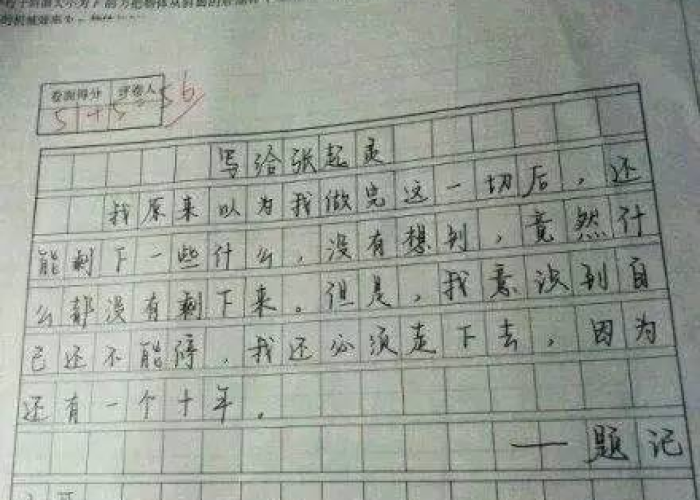 卷面得分 评卷人
5+5 56
写给张起灵
我原来以为我做完这一切后，还
能剩下一些什么，没有想到，竟然什
么都没有剩下来。但是，我意识到自
己还不能停，我还必须走下去，因为
还有一个十年。
——题记